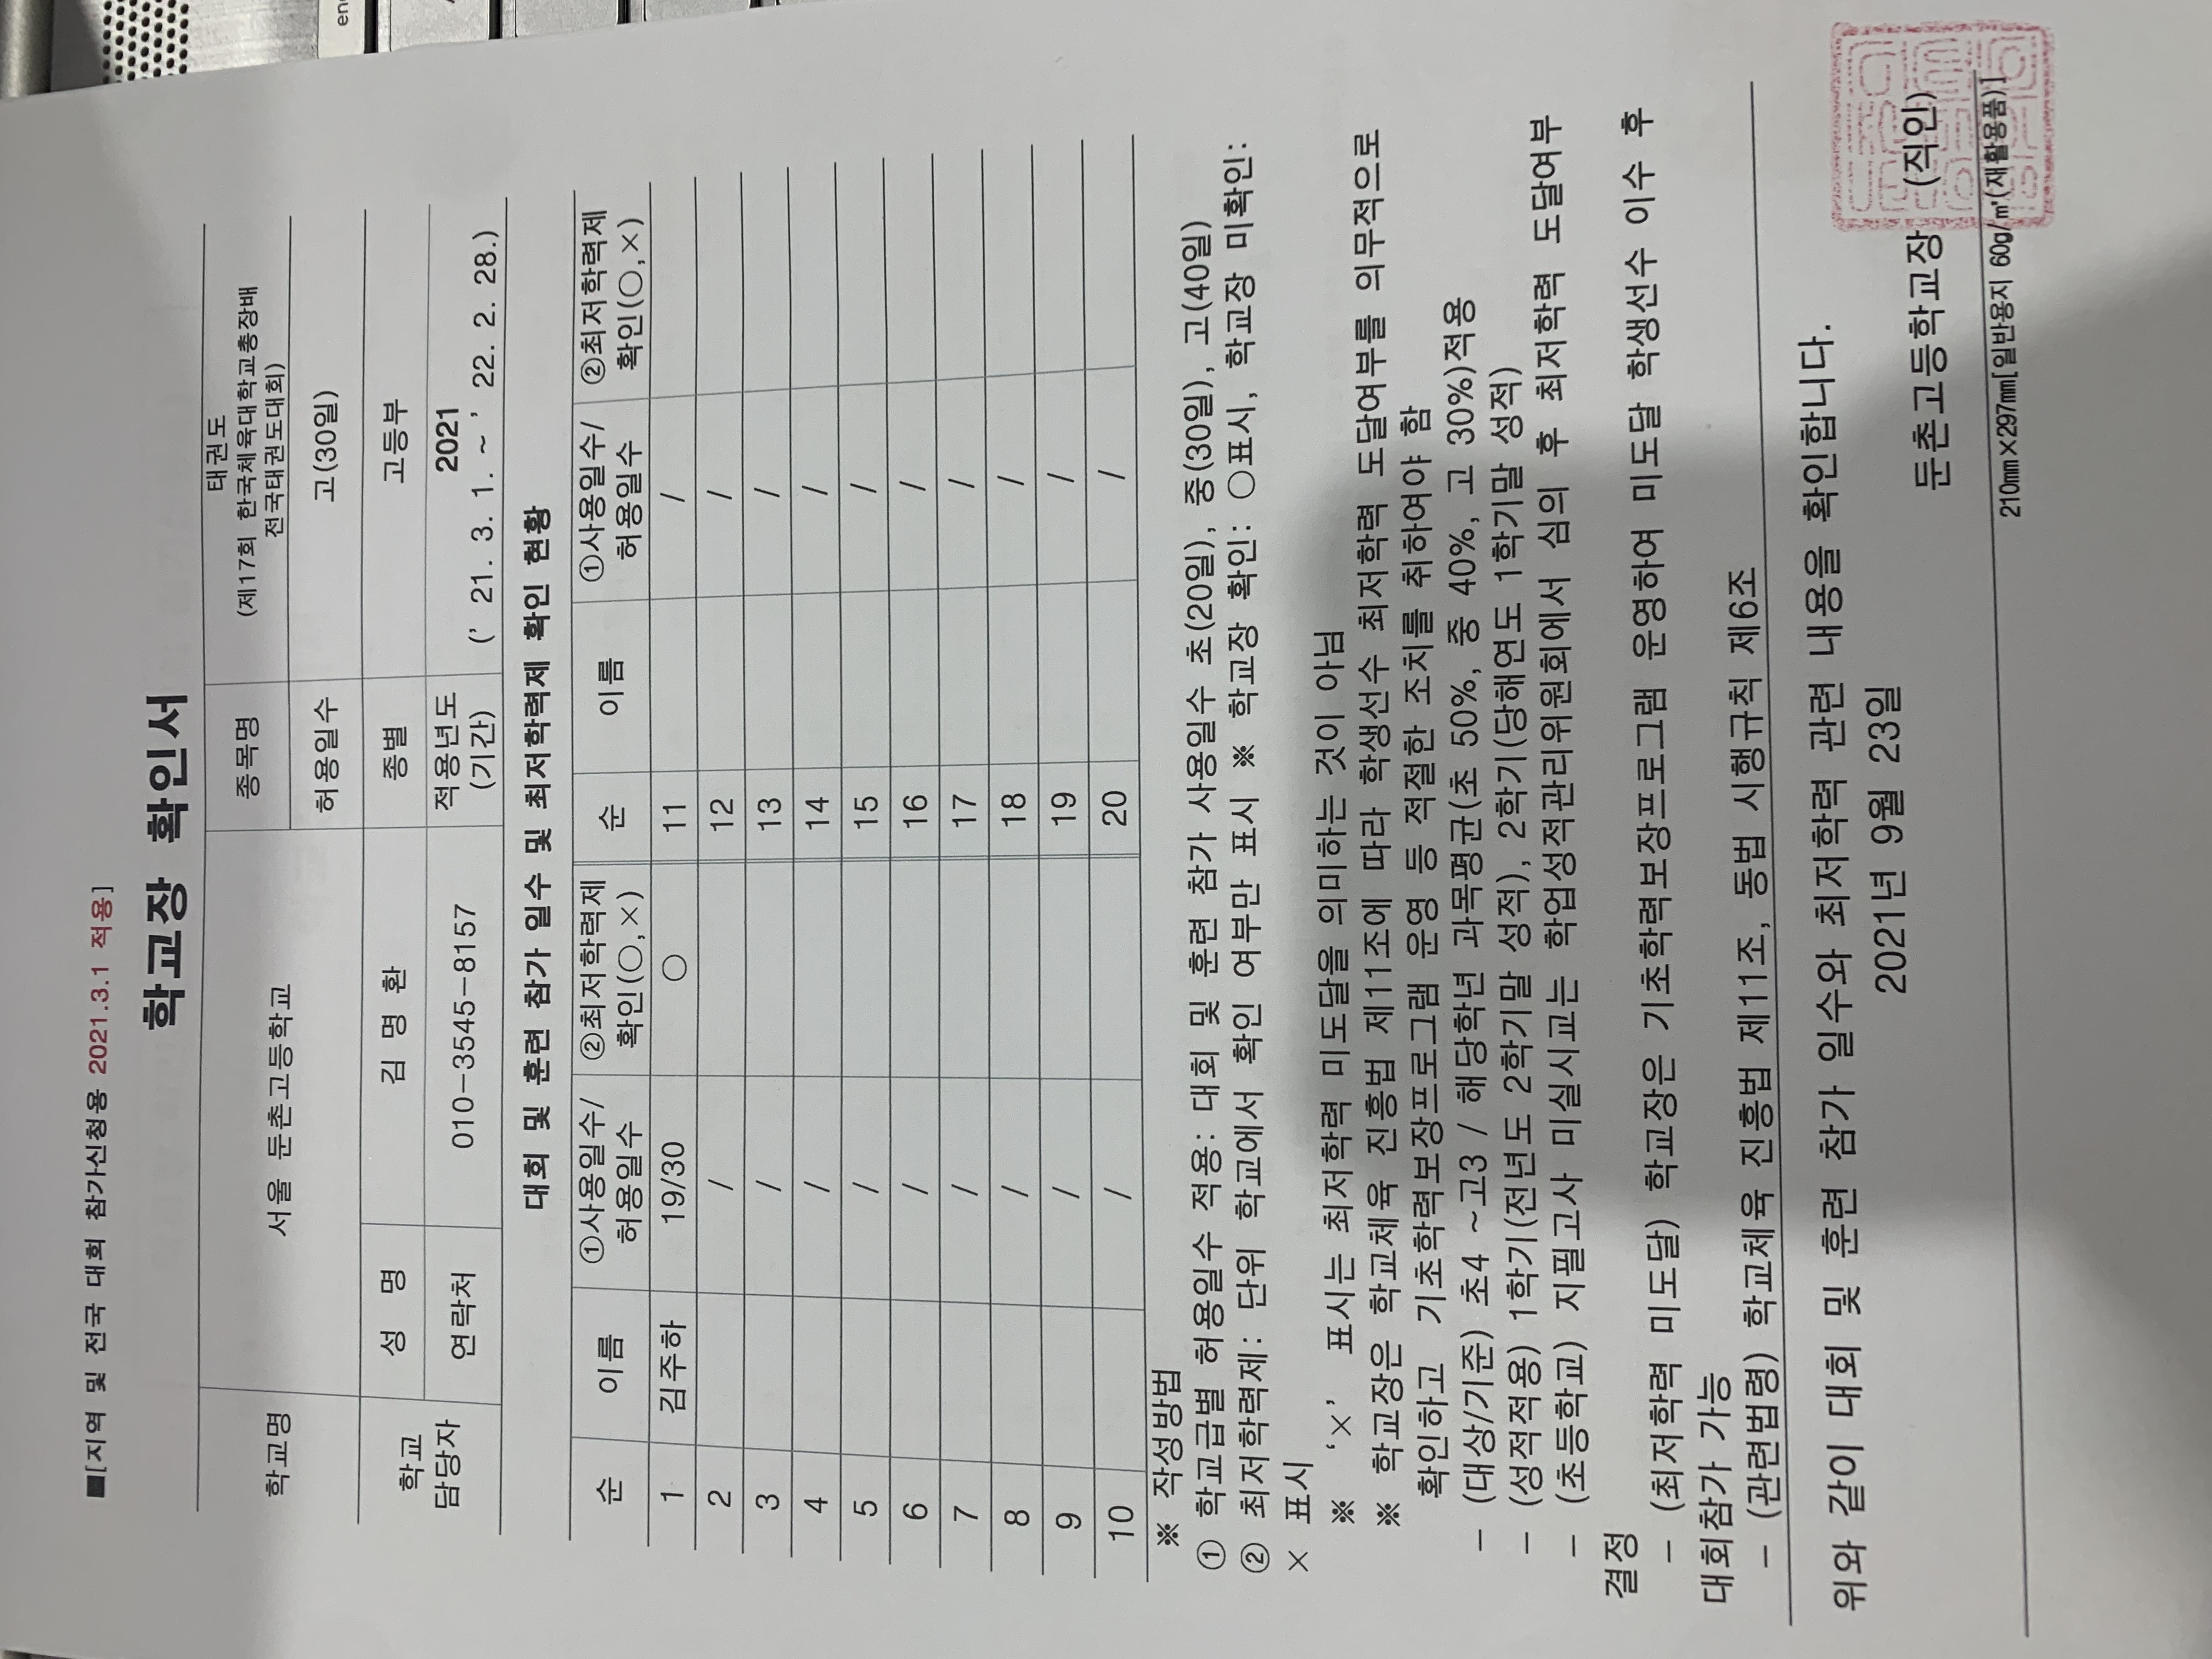 ■[지역 및 전국 대회 참가신청용 2021.3.1 적용]
학교장 확인서
학교명 서울 둔촌고등학교 종목명 태권도
(제17회 한국체육대학교총장배
전국태권도대회)
허용일수 고(30일)
학교
담당자 성 명 김 명 환 종별 고등부
연락처 010-3545-8157 적용년도
(기간) 2021
(' 21. 3. 1. ~ ' 22. 2. 28.)
대회 및 훈련 참가 일수 및 최저학력제 확인 현황
순 이름 ①사용일수/
허용일수 ②최저학력제
확인(○,×) 순 이름 ①사용일수/
허용일수 ②최저학력제
확인(○,×)
1 김주하 19/30 ○ 11 /
2 / 12 /
3 / 13 /
4 / 14 /
5 / 15 /
6 / 16 /
7 / 17 /
8 / 18 /
9 / 19 /
10 / 20 /
※ 작성방법
① 학교급별 허용일수 적용: 대회 및 훈련 참가 사용일수 초(20일), 중(30일), 고(40일)
② 최저학력제: 단위 학교에서 확인 여부만 표시 ※ 학교장 확인: ○표시, 학교장 미확인:
× 표시
※ '×' 표시는 최저학력 미도달을 의미하는 것이 아님
※ 학교장은 학교체육 진흥법 제11조에 따라 학생선수 최저학력 도달여부를 의무적으로
확인하고 기초학력보장프로그램 운영 등 적절한 조치를 취하여야 함
- (대상/기준) 초4 ~고3 / 해당학년 과목평균(초 50%, 중 40%, 고 30%)적용
- (성적적용) 1학기(전년도 2학기말 성적), 2학기(당해연도 1학기말 성적)
- (초등학교) 지필고사 미실시교는 학업성적관리위원회에서 심의 후 최저학력 도달여부
결정
- (최저학력 미도달) 학교장은 기초학력보장프로그램 운영하여 미도달 학생선수 이수 후
대회참가 가능
- (관련법령) 학교체육 진흥법 제11조, 동법 시행규칙 제6조
위와 같이 대회 및 훈련 참가 일수와 최저학력 관련 내용을 확인합니다.
2021년 9월 23일
둔촌고등학교장 (직인)
210㎜×297㎜[일반용지 60g/㎡(재활용품)]